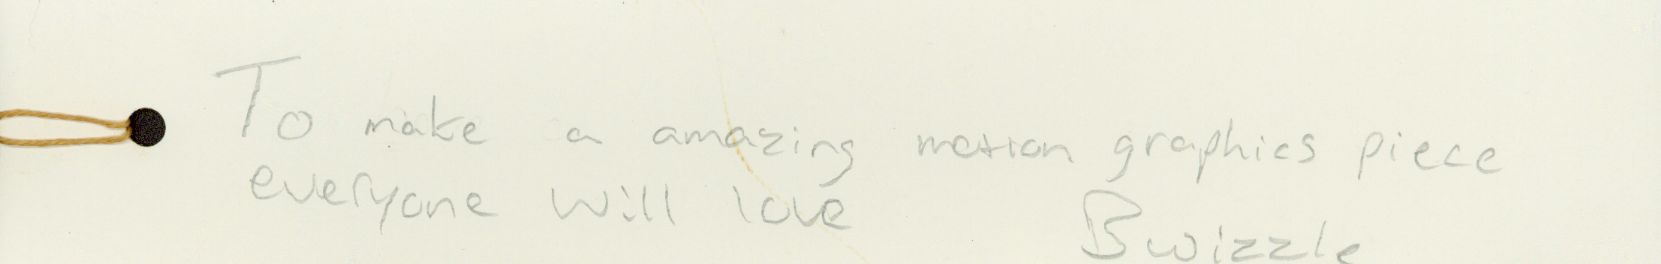 To make a amazing motion graphics piece
everyone will love
Bwizzle